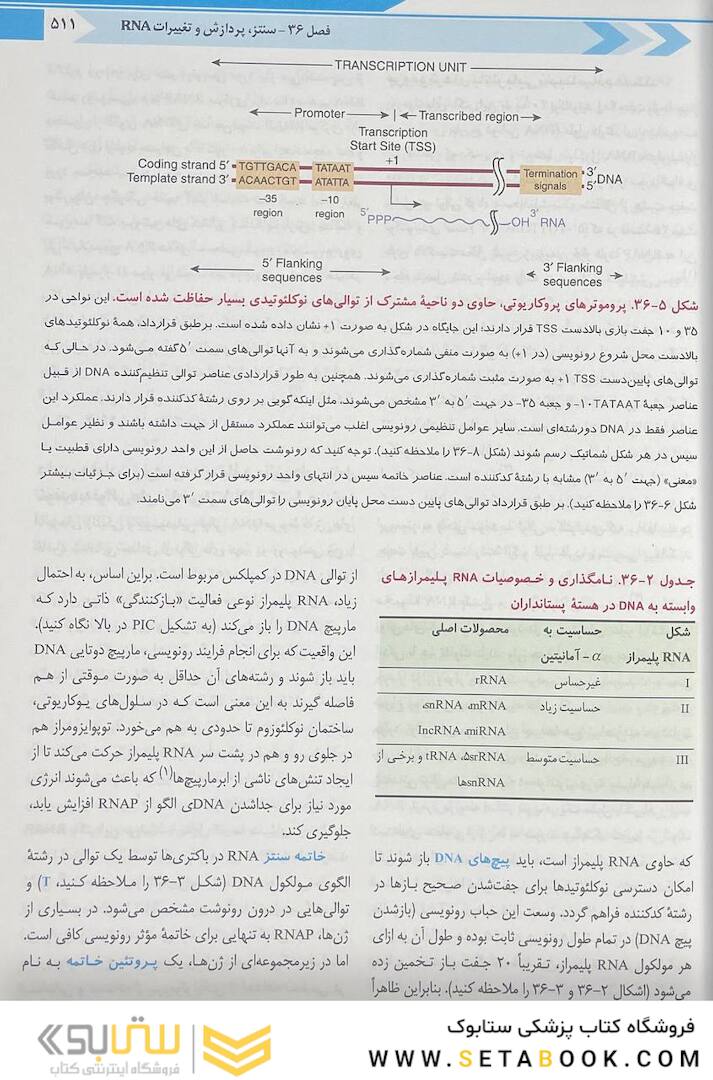 فصل ۳۶ – سنتز، پردازش و تغییرات RNA
۵۱۱
TRANSCRIPTION UNIT
Promoter
Transcribed region
Transcription
Start Site (TSS)
+1
Coding strand 5′ TGTTGACA TATAAT Termination 3′ DNA
Template strand 3′ ACAACTGT ATATTA signals 5′
−35 −10
region region
5′ PPP OH 3′ RNA
5′ Flanking
sequences
3′ Flanking
sequences
شکل ۵-۳۶. پروموترهای پروکاریوتی، حاوی دو ناحیهٔ مشترک از توالی‌های نوکلئوتیدی بسیار حفاظت شده است. این نواحی در
۳۵ و ۱۰ جفت بازی بالادست TSS قرار دارند؛ این جایگاه در شکل به صورت ۱+ نشان داده شده است. برطبق قرارداد، همهٔ نوکلئوتیدهای
بالادست محل شروع رونویسی (در ۱+) به صورت منفی شماره‌گذاری می‌شوند و به آنها توالی‌های سمت ′۵ گفته می‌شود. در حالی که
توالی‌های پایین‌دست TSS ۱+ به صورت مثبت شماره‌گذاری می‌شوند. همچنین به طور قراردادی عناصر توالی تنظیم‌کننده DNA از قبیل
عناصر جعبهٔ TATAAT ۱۰- و جعبه ۳۵- در جهت ′۵ به ′۳ مشخص می‌شوند، مثل اینکه گویی بر روی رشتهٔ کدکننده قرار دارند. عملکرد این
عناصر فقط در DNA دورشته‌ای است. سایر عوامل تنظیمی رونویسی اغلب می‌توانند عملکرد مستقل از جهت داشته باشند و نظیر عوامل
سیس در هر شکل شماتیک رسم شوند (شکل ۸-۳۶ را ملاحظه کنید). توجه کنید که رونوشت حاصل از این واحد رونویسی دارای قطبیت یا
«معنی» (جهت ′۵ به ′۳) مشابه با رشتهٔ کدکننده است. عناصر خاتمه سیس در انتهای واحد رونویسی قرار گرفته است (برای جزئیات بیشتر
شکل ۶-۳۶ را ملاحظه کنید). بر طبق قرارداد توالی‌های پایین دست محل پایان رونویسی را توالی‌های سمت ′۳ می‌نامند.
جدول ۲-۳۶. نامگذاری و خصوصیات RNA پلیمرازهای
وابسته به DNA در هستهٔ پستانداران
شکل حساسیت به محصولات اصلی
RNA پلیمراز α - آمانیتین
I غیرحساس rRNA
II حساسیت زیاد mRNA، snRNA،
miRNA، lncRNA
III حساسیت متوسط tRNA، ۵srRNA و برخی از
snRNAها
که حاوی RNA پلیمراز است، باید پیچ‌های DNA باز شوند تا
امکان دسترسی نوکلئوتیدها برای جفت‌شدن صحیح بازها در
رشتهٔ کدکننده فراهم گردد. وسعت این حباب رونویسی (بازشدن
پیچ DNA) در تمام طول رونویسی ثابت بوده و طول آن به ازای
هر مولکول RNA پلیمراز، تقریباً ۲۰ جفت باز تخمین زده
می‌شود (اشکال ۲-۳۶ و ۳-۳۶ را ملاحظه کنید). بنابراین ظاهراً
از توالی DNA در کمپلکس مربوط است. براین اساس، به احتمال
زیاد، RNA پلیمراز نوعی فعالیت «بازکنندگی» ذاتی دارد که
مارپیچ DNA را باز می‌کند (به تشکیل PIC در بالا نگاه کنید).
این واقعیت که برای انجام فرایند رونویسی، مارپیچ دوتایی DNA
باید باز شوند و رشته‌های آن حداقل به صورت موقتی از هم
فاصله گیرند به این معنی است که در سلول‌های یوکاریوتی،
ساختمان نوکلئوزوم تا حدودی به هم می‌خورد. توپوایزومراز هم
در جلوی رو و هم در پشت سر RNA پلیمراز حرکت می‌کند تا از
ایجاد تنش‌های ناشی از ابرمارپیچ‌ها(۱) که باعث می‌شوند انرژی
مورد نیاز برای جداشدن DNAی الگو از RNAP افزایش یابد،
جلوگیری کند.
خاتمه سنتز RNA در باکتری‌ها توسط یک توالی در رشتهٔ
الگوی مولکول DNA (شکل ۳-۳۶ را ملاحظه کنید، T) و
توالی‌هایی در درون رونوشت مشخص می‌شود. در بسیاری از
ژن‌ها، RNAP به تنهایی برای خاتمهٔ مؤثر رونویسی کافی است.
اما در زیرمجموعه‌ای از ژن‌ها، یک پروتئین خاتمه به نام
فروشگاه کتاب پزشکی ستابوک
WWW.SETABOOK.COM
ستابوک
فروشگاه اینترنتی کتاب